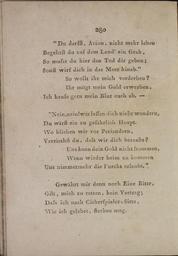 280
"Du darfst, Arion, nicht mehr leben:
Begehrst du auf dem Land' ein Grab,
So musst du hier den Tod dir geben;
Sonst wirf dich in das Meer hinab." –
So wollt ihr mich verderben?
Ihr mögt mein Gold erwerben,
Ich kaufe gern mein Blut euch ab. –
"Nein, nein! wir lassen dich nicht wandern,
Du wärst ein zu gefährlich Haupt.
Wo blieben wir vor Periandern,
Verriethst du, dass wir dich beraubt?
Uns kann dein Gold nicht frommen,
Wenn wieder heim zu kommen
Uns nimmermehr die Furcht erlaubt." –
Gewährt mir denn noch Eine Bitte,
Gilt, mich zu retten, kein Vertrag:
Dass ich nach Citherspieler-Sitte,
Wie ich gelebet, sterben mag.